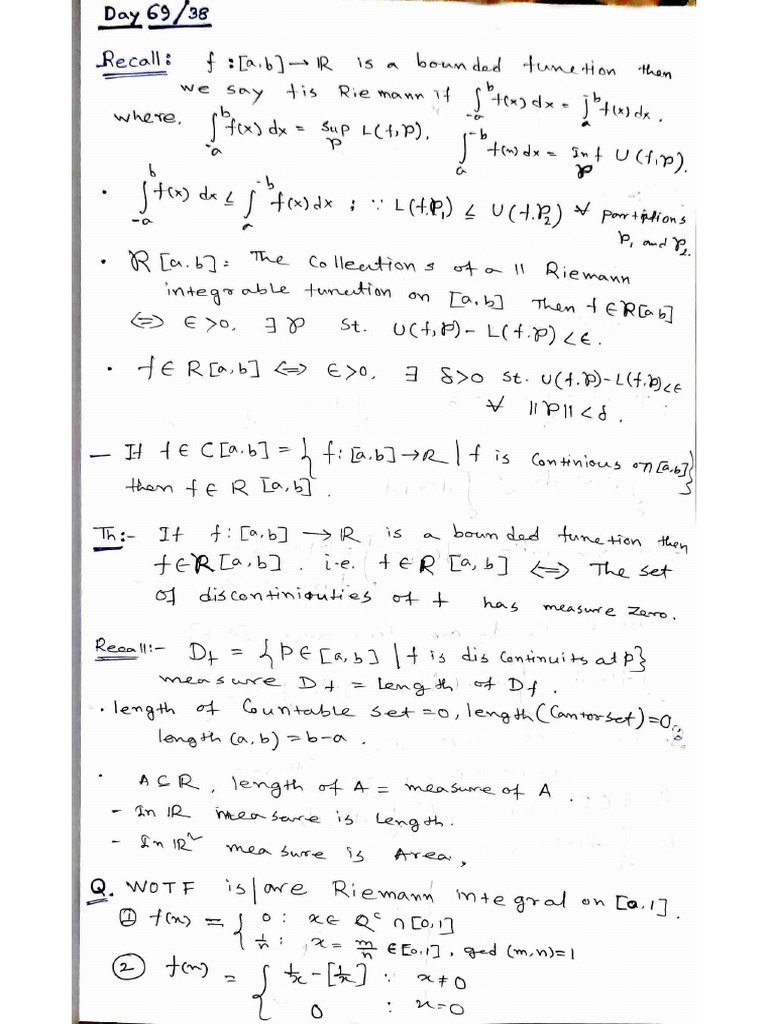 Day 69/38
Recall: f:[a,b]→ℝ is a bounded function then
we say f is Riemann if ∫_{-a}^{b} f(x) dx = ∫_{a}^{-b} f(x) dx.
where, ∫_{-a}^{b} f(x) dx = Sup_P L(f,P), ∫_{a}^{-b} f(x) dx = Inf_P U(f,P).
• ∫_{-a}^{b} f(x) dx ≤ ∫_{a}^{-b} f(x) dx ; ∵ L(f,P₁) ≤ U(f,P₂) ∀ partitions
P₁ and P₂.
• R[a,b] = The Collections of all Riemann
integrable function on [a,b] Then f∈R[a,b]
⟺ ϵ>0, ∃ P st. U(f,P)-L(f,P)<ϵ.
• f∈R[a,b] ⟺ ϵ>0, ∃ δ>0 st. U(f,P)-L(f,P)<ϵ
∀ ||P||<δ.
— If f∈C[a,b] = {f:[a,b]→R | f is Continious on [a,b]}
then f∈R[a,b].
Th:- If f:[a,b]→ℝ is a bounded function then
f∈R[a,b]. i.e. f∈R[a,b] ⟺ The set
of discontiniouties of f has measure zero.
Recall:- D_f = {P∈[a,b] | f is dis continuits at P}
measure D_f = Length of D_f.
• length of Countable set = 0, length (Cantor set) = 0,
length (a,b) = b-a.
• A⊆R, length of A = measure of A.
- In ℝ measure is length.
- In ℝ² measure is Area,
Q. WOTF is/are Riemann integral on [0,1].
① f(x) = { 0 : x∈ Qᶜ∩[0,1]
1/n : x = m/n ∈[0,1], gcd (m,n)=1
② f(x) = { 1/x - [1/x] : x≠0
0 : x=0